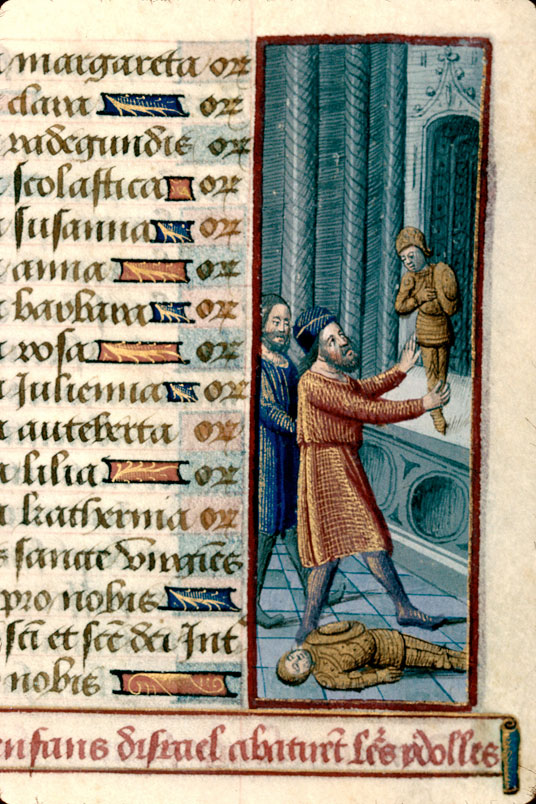 margareta or
clara or
radegundis or
scolastica or
susanna or
anna or
barbara or
rosa or
Julienna or
auteberta or
lilia or
katherina or
s sancte virgīes
pro nobis
scī et scē dei Int
nobis
enfans disrael abatirēt les ydolles